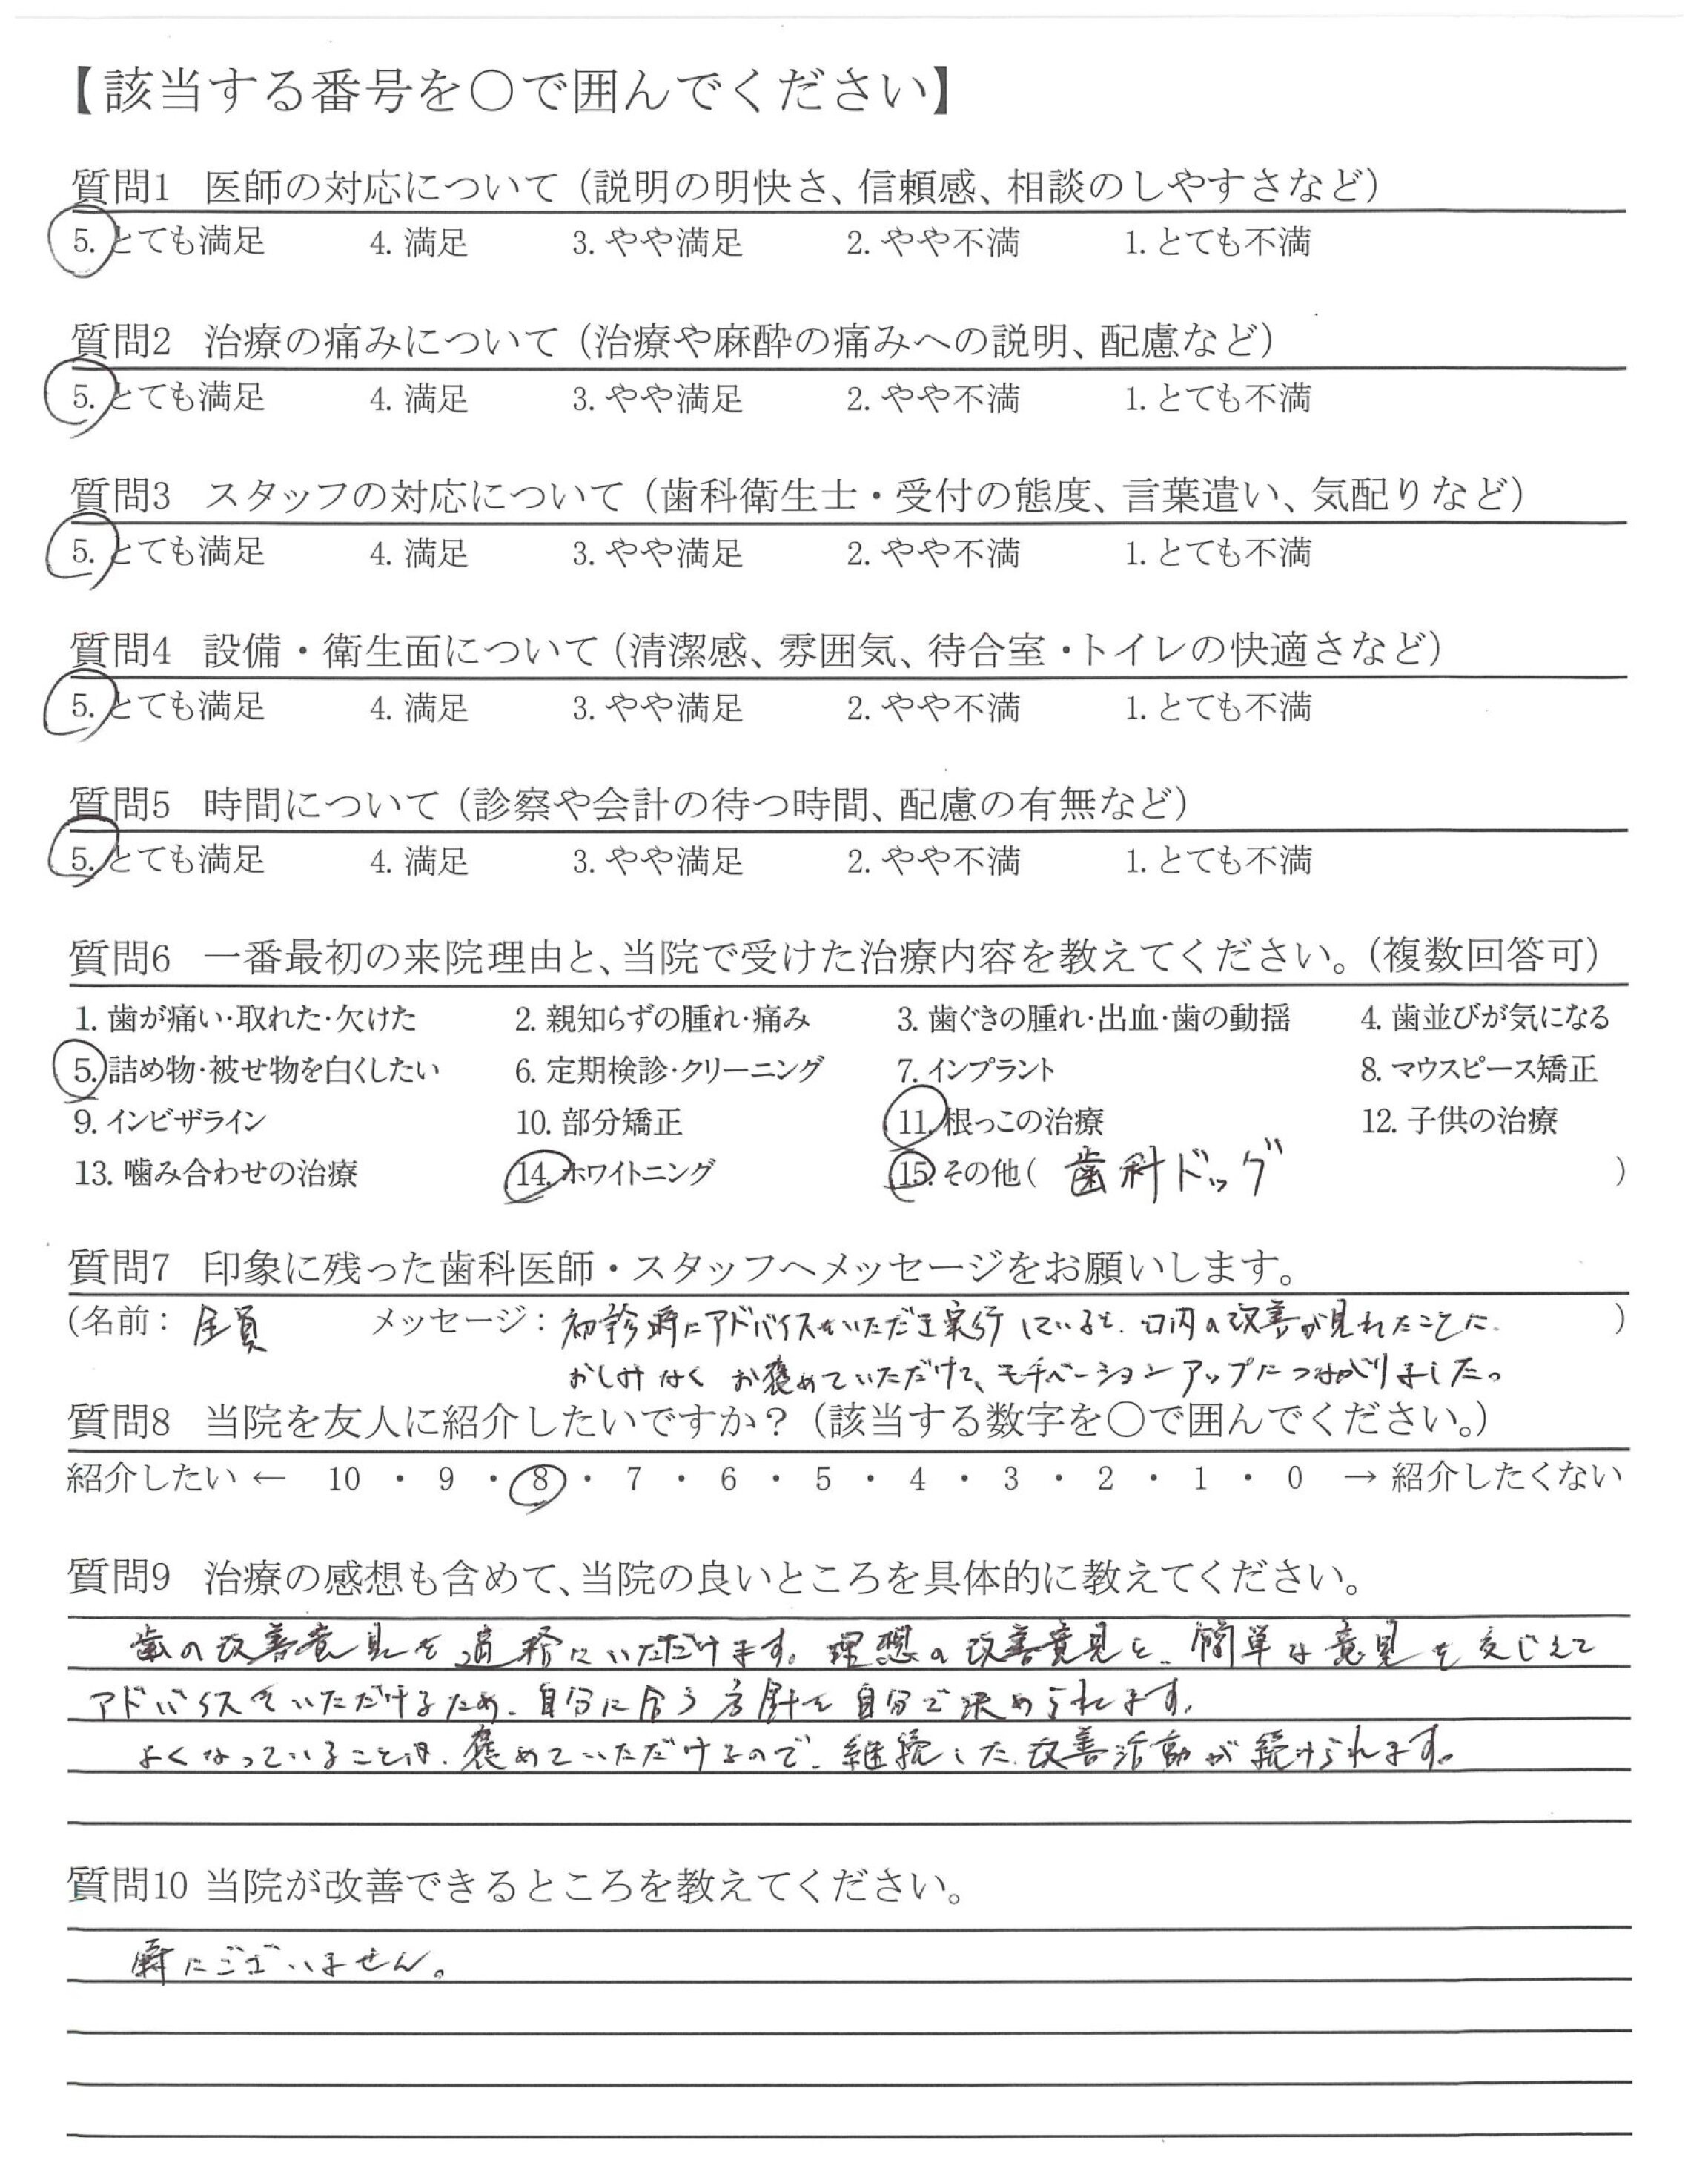 【該当する番号を〇で囲んでください】
質問1 医師の対応について（説明の明快さ、信頼感、相談のしやすさなど）
5. とても満足 4. 満足 3. やや満足 2. やや不満 1. とても不満
質問2 治療の痛みについて（治療や麻酔の痛みへの説明、配慮など）
5. とても満足 4. 満足 3. やや満足 2. やや不満 1. とても不満
質問3 スタッフの対応について（歯科衛生士・受付の態度、言葉遣い、気配りなど）
5. とても満足 4. 満足 3. やや満足 2. やや不満 1. とても不満
質問4 設備・衛生面について（清潔感、雰囲気、待合室・トイレの快適さなど）
5. とても満足 4. 満足 3. やや満足 2. やや不満 1. とても不満
質問5 時間について（診察や会計の待つ時間、配慮の有無など）
5. とても満足 4. 満足 3. やや満足 2. やや不満 1. とても不満
質問6 一番最初の来院理由と、当院で受けた治療内容を教えてください。（複数回答可）
1. 歯が痛い·取れた·欠けた 2. 親知らずの腫れ·痛み 3. 歯ぐきの腫れ·出血·歯の動揺 4. 歯並びが気になる
5. 詰め物·被せ物を白くしたい 6. 定期検診·クリーニング 7. インプラント 8. マウスピース矯正
9. インビザライン 10. 部分矯正 11. 根っこの治療 12. 子供の治療
13. 噛み合わせの治療 14. ホワイトニング 15. その他( 歯科ドッグ )
質問7 印象に残った歯科医師・スタッフへメッセージをお願いします。
(名前： 全員 メッセージ： 初診時にアドバイスをいただき実行していると、口内の改善が見れたことに、 )
おしみなく お褒めていただけて、モチベーションアップにつながりました。
質問8 当院を友人に紹介したいですか？（該当する数字を〇で囲んでください。）
紹介したい ← 10 ・ 9 ・ 8 ・ 7 ・ 6 ・ 5 ・ 4 ・ 3 ・ 2 ・ 1 ・ 0 → 紹介したくない
質問9 治療の感想も含めて、当院の良いところを具体的に教えてください。
歯の改善意見を にいただけます。理想の改善意見と、簡単な意見を交じえて
アドバイスをいただけるため、自分に合う方針を自分で決められます。
よくなっていることは、褒めていただけるので、継続した改善活動が続けられます。
質問10 当院が改善できるところを教えてください。
特にございません。